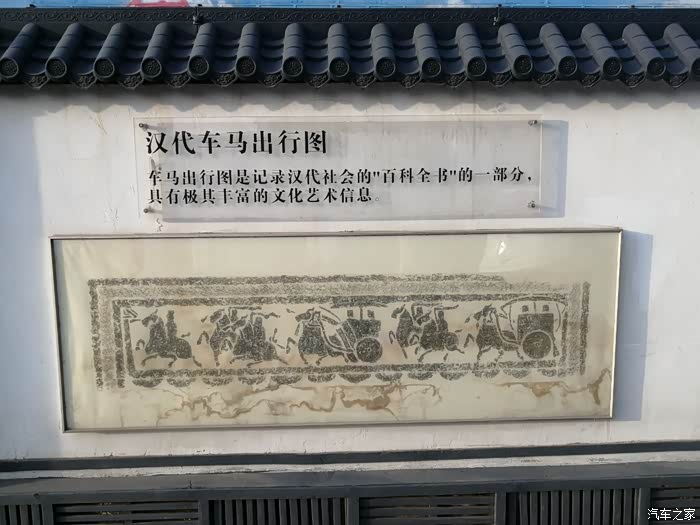 汉代车马出行图
车马出行图是记录汉代社会的"百科全书"的一部分，
具有极其丰富的文化艺术信息。
汽车之家